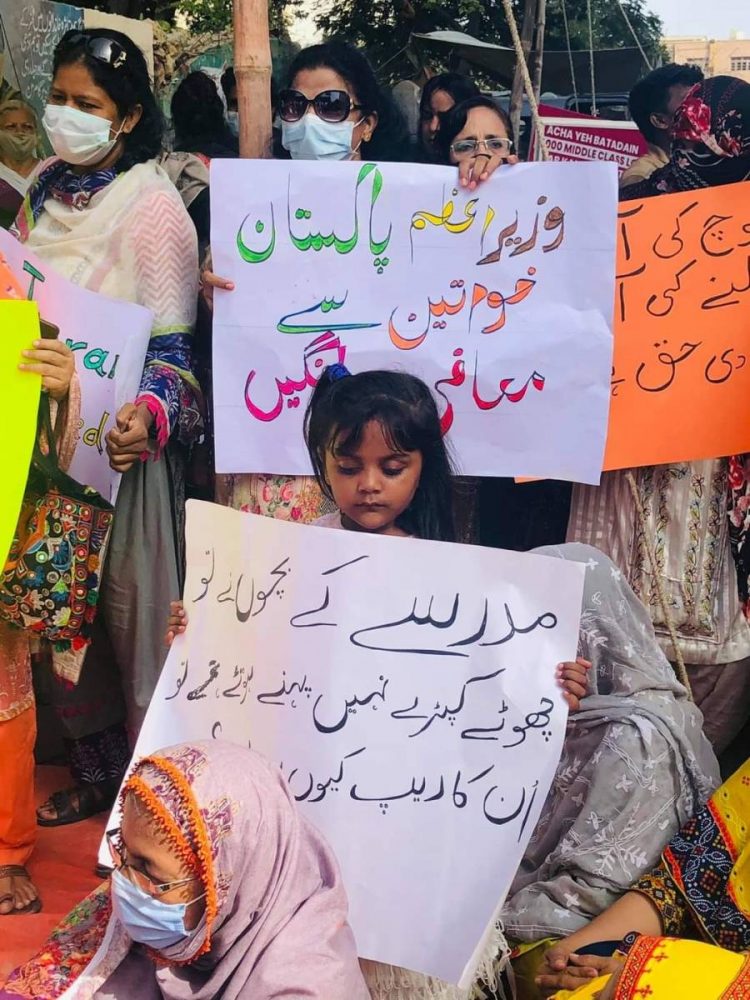 وزیراعظم پاکستان
خواتین سے
معافی مانگیں
مدرسے کے بچوں نے تو
چھوٹے کپڑے نہیں پہنے ہوئے تھے تو
اُن کا ریپ کیوں
ACHA YEH BATADAIN
MIDDLE CLASS
وچ کی آ
لنے کی آ
دی حق ہے